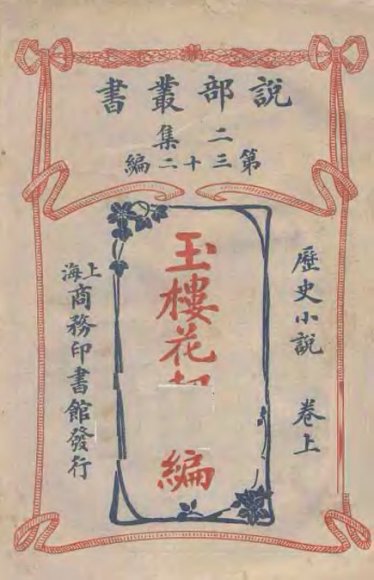 說部叢書
二集
第三十二編
歷史小說 卷上
玉樓花 編
上海商務印書館發行